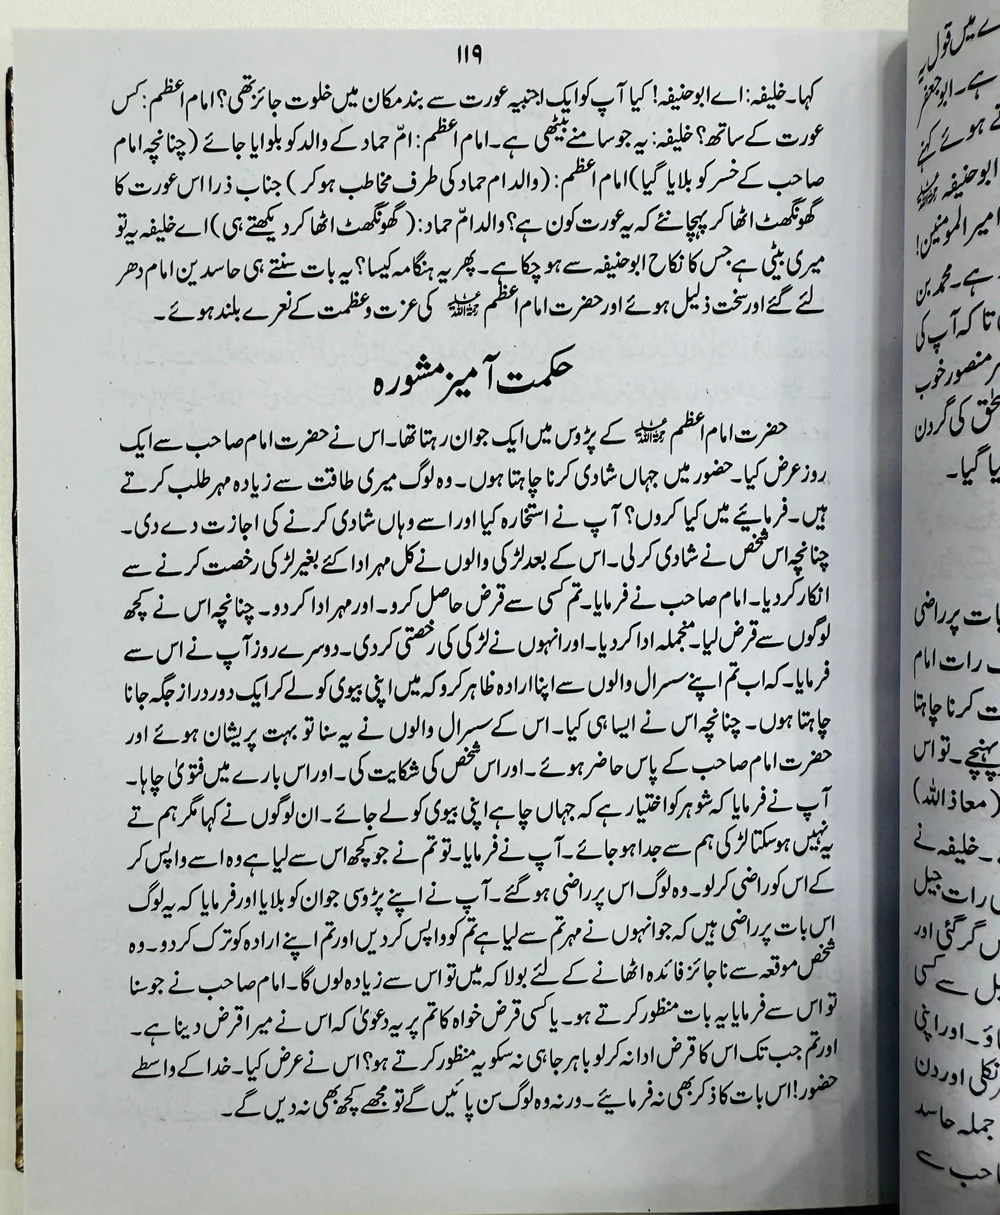 ۱۱۹
کہا۔ خلیفہ: اے ابوحنیفہ! کیا آپ کو ایک اجنبیہ عورت سے بند مکان میں خلوت جائز تھی؟ امام اعظم: کس
عورت کے ساتھ؟ خلیفہ: یہ جو سامنے بیٹھی ہے۔ امام اعظم: امّ حماد کے والد کو بلوایا جائے (چنانچہ امام
صاحب کے خسر کو بلایا گیا) امام اعظم: (والد ام حماد کی طرف مخاطب ہو کر) جناب ذرا اس عورت کا
گھونگھٹ اٹھا کر پہچانئے کہ یہ عورت کون ہے؟ والد امّ حماد: (گھونگھٹ اٹھا کر دیکھتے ہی) اے خلیفہ یہ تو
میری بیٹی ہے جس کا نکاح ابوحنیفہ سے ہو چکا ہے۔ پھر یہ ہنگامہ کیسا؟ یہ بات سنتے ہی حاسدین امام دھر
لئے گئے اور سخت ذلیل ہوئے اور حضرت امام اعظم رحمۃ اللہ علیہ کی عزت و عظمت کے نعرے بلند ہوئے۔
حکمت آمیز مشورہ
حضرت امام اعظم رحمۃ اللہ علیہ کے پڑوس میں ایک جوان رہتا تھا۔ اس نے حضرت امام صاحب سے ایک
روز عرض کیا۔ حضور میں جہاں شادی کرنا چاہتا ہوں۔ وہ لوگ میری طاقت سے زیادہ مہر طلب کرتے
ہیں۔ فرمائیے میں کیا کروں؟ آپ نے استخارہ کیا اور اسے وہاں شادی کرنے کی اجازت دے دی۔
چنانچہ اس شخص نے شادی کر لی۔ اس کے بعد لڑکی والوں نے کل مہر ادا کئے بغیر لڑکی رخصت کرنے سے
انکار کر دیا۔ امام صاحب نے فرمایا۔ تم کسی سے قرض حاصل کرو۔ اور مہر ادا کر دو۔ چنانچہ اس نے کچھ
لوگوں سے قرض لیا۔ منجملہ ادا کر دیا۔ اور انہوں نے لڑکی کی رخصتی کر دی۔ دوسرے روز آپ نے اس سے
فرمایا۔ کہ اب تم اپنے سسرال والوں سے اپنا ارادہ ظاہر کرو کہ میں اپنی بیوی کو لے کر ایک دور دراز جگہ جانا
چاہتا ہوں۔ چنانچہ اس نے ایسا ہی کیا۔ اس کے سسرال والوں نے یہ سنا تو بہت پریشان ہوئے اور
حضرت امام صاحب کے پاس حاضر ہوئے۔ اور اس شخص کی شکایت کی۔ اور اس بارے میں فتویٰ چاہا۔
آپ نے فرمایا کہ شوہر کو اختیار ہے کہ جہاں چاہے اپنی بیوی کو لے جائے۔ ان لوگوں نے کہا مگر ہم تے
یہ نہیں ہو سکتا لڑکی ہم سے جدا ہو جائے۔ آپ نے فرمایا۔ تو تم نے جو کچھ اس سے لیا ہے وہ اسے واپس کر
کے اس کو راضی کر لو۔ وہ لوگ اس پر راضی ہو گئے۔ آپ نے اپنے پڑوسی جوان کو بلایا اور فرمایا کہ یہ لوگ
اس بات پر راضی ہیں کہ جو انہوں نے مہر تم سے لیا ہے تم کو واپس کر دیں اور تم اپنے ارادہ کو ترک کر دو۔ وہ
شخص موقعہ سے ناجائز فائدہ اٹھانے کے لئے بولا کہ میں تو اس سے زیادہ لوں گا۔ امام صاحب نے جو سنا
تو اس سے فرمایا یہ بات منظور کرتے ہو۔ یا کسی قرض خواہ کا تم پر یہ دعویٰ کہ اس نے میرا قرض دینا ہے۔
اور تم جب تک اس کا قرض ادا نہ کر لو باہر جا ہی نہ سکو یہ منظور کرتے ہو؟ اس نے عرض کیا۔ خدا کے واسطے
حضور! اس بات کا ذکر بھی نہ فرمائیے۔ ورنہ وہ لوگ سن پائیں گے تو مجھے کچھ بھی نہ دیں گے۔
میں قول یہ
ہے۔ ابو جعفر
ہوئے کہنے
ابوحنیفہ
امیر المومنین!
ہے۔ محمد بن
تا کہ آپ کی
منصور خوب
کی گردن
گیا۔
بات پر راضی
رات امام
کرنا چاہتا
پہنچے۔ تو اس
(معاذ اللہ)
۔ خلیفہ نے
رات جیل
گر گئی اور
سے کسی
اور اپنی
نکلی اور دن
جملہ حاسد